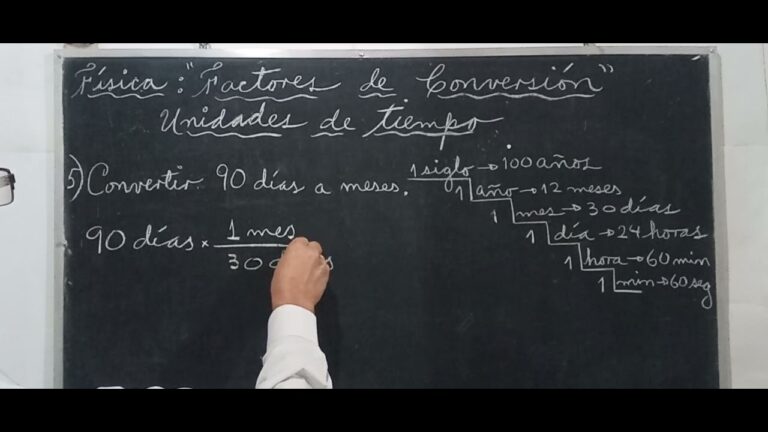 Física: "Factores de Conversión"
Unidades de tiempo
5) Convertir: 90 días a meses.
90 días × 1 mes
30 días
1 siglo → 100 años
1 año → 12 meses
1 mes → 30 días
1 día → 24 horas
1 hora → 60 min
1 min → 60 seg